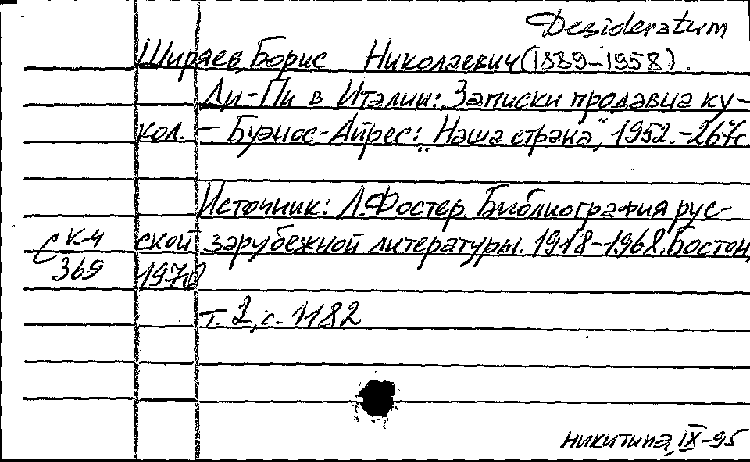 Desideratum
Ширяев, Борис Николаевич (1889-1958).
Ди-Пи в Италии: Записки продавца ку-
кол. - Буэнос-Айрес: "Наша страна", 1952. - 267с
Источник: Л. Фостер. Библиография рус-
ской зарубежной литературы. 1918-1968. Бостон,
1970
т. 2, с. 1182
С К-4
369
Никитина, IX-95